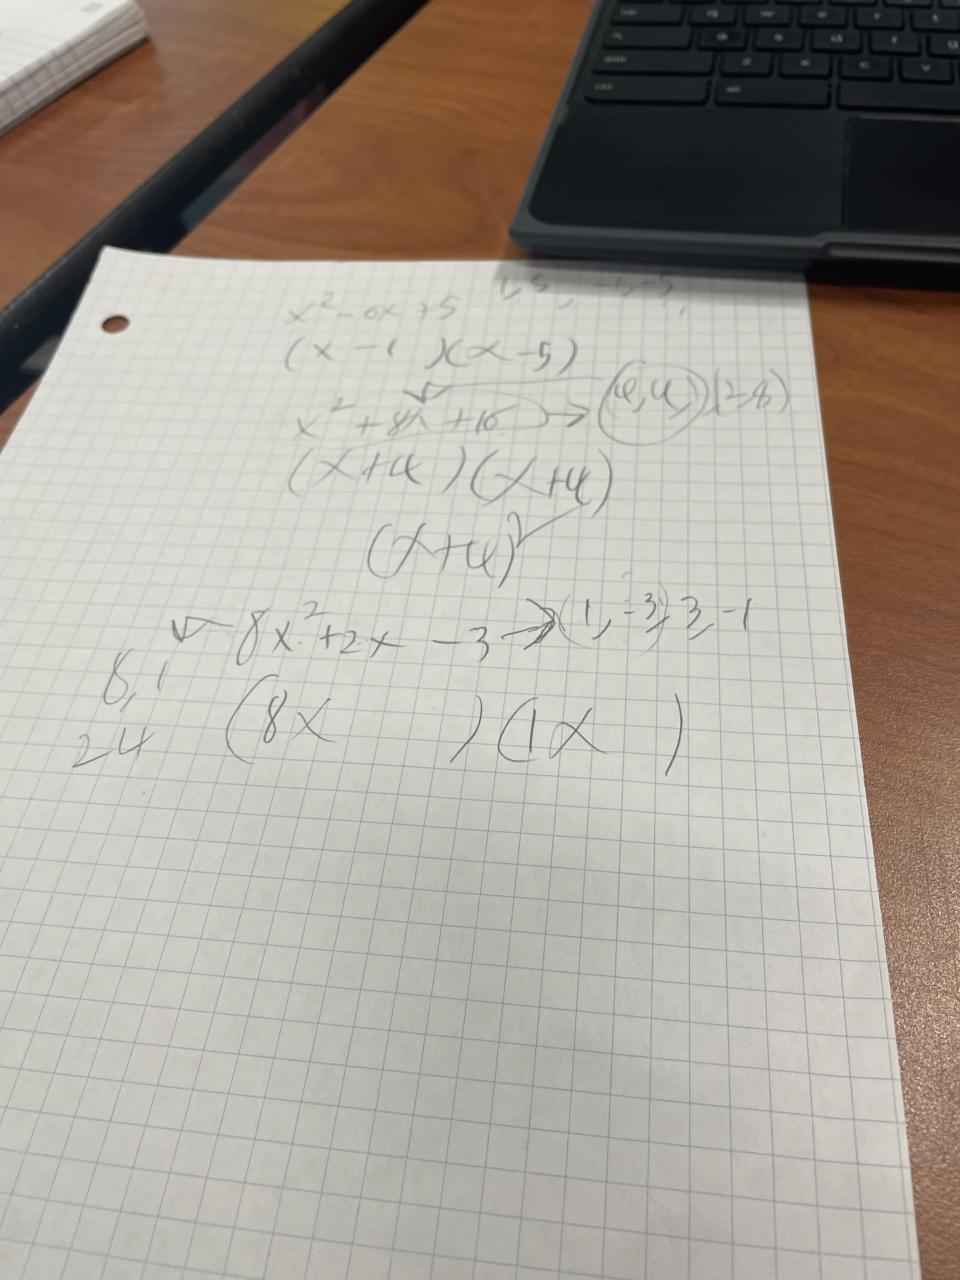 x² - 6x + 5 1,5, -1,-5,
(x - 1)(x - 5)
x² + 8x + 16 → (4,4,)(2,8)
(x+4)(x+4)
(x+4)²
8x² + 2x - 3 → (1,-3) 3,-1
8,1
(8x )(1x )
24